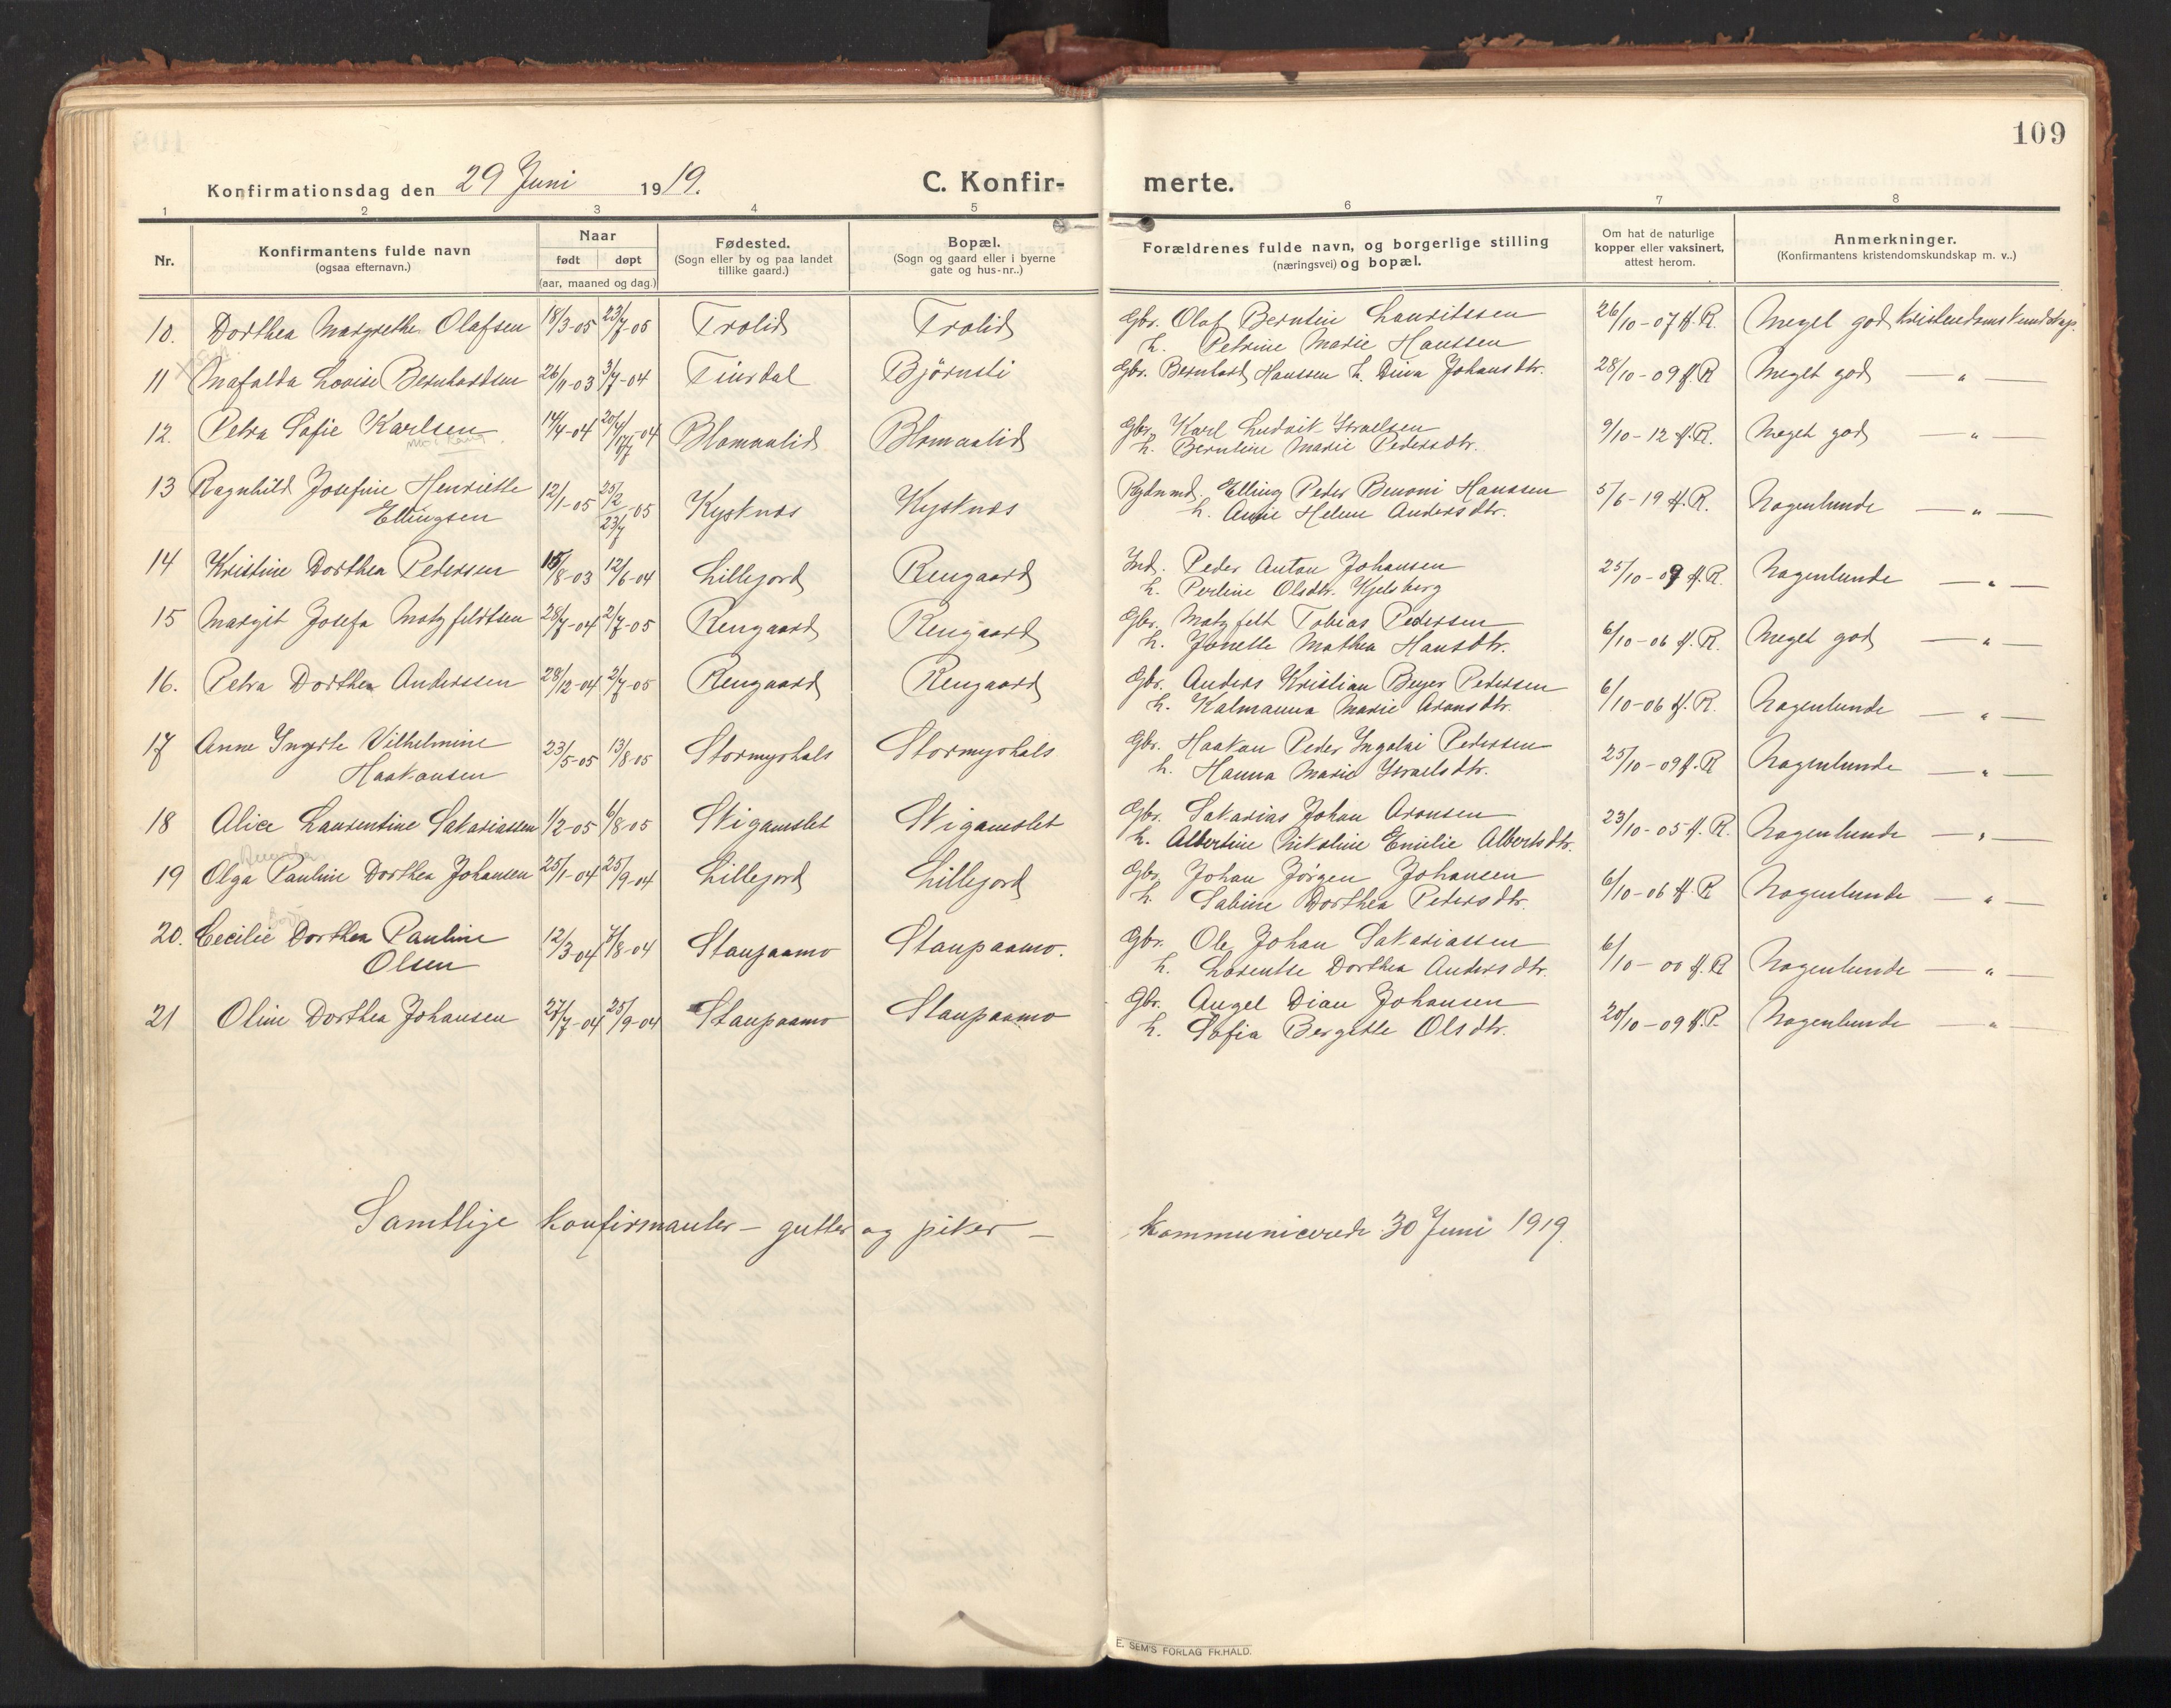 109
Konfirmationsdag den 29 Juni 1919.
C. Konfir-merte.
1 2 3 4 5 6 7 8
Nr.
Konfirmantens fulde navn
(ogsaa efternavn.)
Naar
født døpt
(aar, maaned og dag.)
Fødested.
(Sogn eller by og paa landet
tillike gaard.)
Bopæl.
(Sogn og gaard eller i byerne
gate og hus-nr..)
Forældrenes fulde navn, og borgerlige stilling
(næringsvei) og bopæl.
Om hat de naturlige
kopper eller vaksinert,
attest herom.
Anmerkninger.
(Konfirmantens kristendomskundskap m. v..)
10. Dorthea Margrethe Olafsen 18/3-05 23/7-05 Trolid Trolid Gbr. Olaf Berntin Lauritssen 26/10-07 H.R. Meget god kristendomskundskap.
h. Petrine Marie Hanssen
11 Mafalda Lovise Bernhardsen 26/11-03 3/7-04 Tinsdal Björnsti Gbr. Bernhard Hanssen h. Dina Johansdtr. 28/10-09 H.R Meget god — " —
12. Petra Sofie Karlsen 14/4-04 20/4 17/7-04 Blomaalid Blomaalid Gbr. Karl Ludvik Israelsen 9/10-12 H.R. Meget god — " —
h. Berntine Marie Pedersdtr.
13 Ragnhild Josefine Henriette 12/1-05 25/2 23/7-05 Kysknæs Kysknæs Rydnmd. Elling Peder Benoni Hanssen 5/6-19 H.R. Nogenlunde — " —
Ellingsen h. Anne Helene Andersdtr.
14 Kristine Dorthea Petersen 15/8-03 12/6-04 Lillejord Rengaard Ind. Peder Antau Johansen 25/10-09 H.R. Nogenlunde — " —
h. Perline Olsdtr. Kjelsberg
15 Margit Josefa Motzfeldtsen 28/7-04 2/7-05 Rengaard Rengaard Gbr. Motzfelt Tobias Pedersen 6/10-06 H.R. Meget god — " —
h. Jonette Mathea Hansdtr.
16. Petra Dorthea Anderssen 28/12-04 2/7-05 Rengaard Rengaard Gbr. Anders Kristian Beyer Petersen 6/10-06 H.R. Nogenlunde — " —
h. Kalmanna Marie Aronsdtr.
17 Anne Ingerte Vilhelmine 23/5-05 13/8-05 Stormyrhals Stormyrhals Gbr. Haakon Peder Ingolai Pedersen 25/10-09 H.R Nogenlunde — " —
Haakonsen h. Hanna Marie Israelsdtr.
18 Alice Laurentine Sakariassen 1/2-05 6/8-05 Stigamslet Stigamslet Gbr. Sakarias Johan Aronsen 23/10-05 H.R. Nogenlunde — " —
h. Albertine Nikoline Emilie Albertsdtr.
19 Olga Pauline Dorthea Johansen 25/1-04 25/9-04 Lillejord Lillejord Gbr. Johan Jörgen Johansen 6/10-06 H.R Nogenlunde — " —
h. Sabine Dorthea Petersdtr.
20. Cecilie Dorthea Pauline 12/3-04 7/8-04 Staupaamo Staupaamo. Gbr. Ole Johan Sakariassen 6/10-06 H.R Nogenlunde — " —
Olsen h. Lorentse Dorthea Andersdtr.
21 Oline Dorthea Johansen 27/7-04 25/9-04 Staupaamo Staupaamo Gbr. Angel Dian Johansen 20/10-09 H.R. Nogenlunde — " —
h. Sofia Bergitte Olsdtr.
Samtlige konfirmanter – gutter og piker – kommunicerede 30 Juni 1919.
E. SEM'S FORLAG FR.HALD.